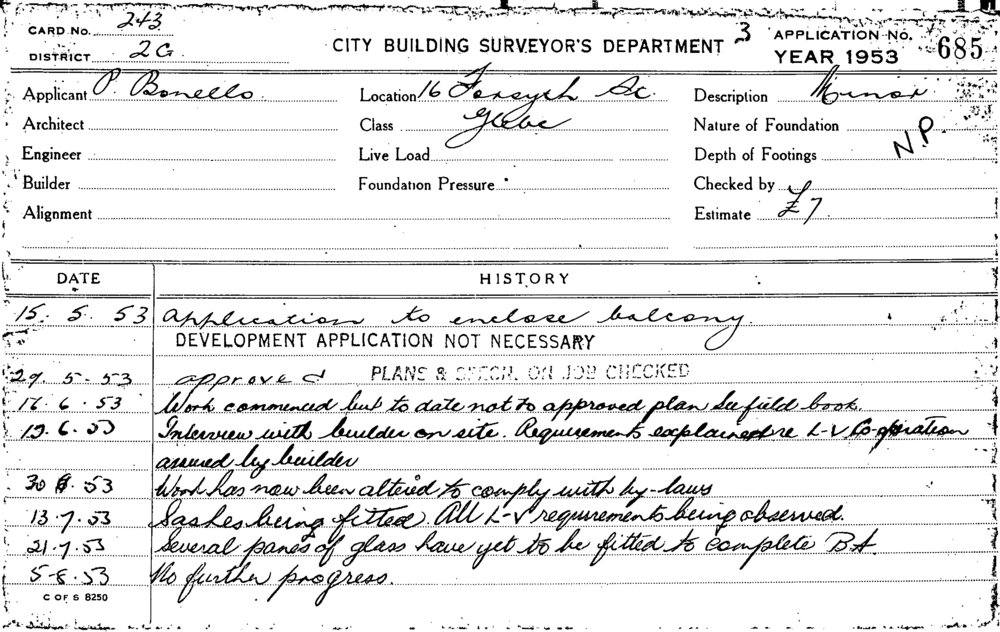 CARD No. 243
DISTRICT 2G
CITY BUILDING SURVEYOR'S DEPARTMENT 3
APPLICATION No. 685
YEAR 1953
Applicant P. Bonello Location 16 Forsyth St. Description Minor
Architect Class Glebe Nature of Foundation
Engineer Live Load Depth of Footings N.P.
Builder Foundation Pressure Checked by
Alignment Estimate £7
DATE HISTORY
15. 5. 53 Application to enclose balcony.
DEVELOPMENT APPLICATION NOT NECESSARY
29. 5. 53 approved PLANS & SPECN. ON JOB CHECKED
6. 53 Work commenced but to date not to approved plan See field book.
6. 53 Interview with builder on site. Requirements explained re L-V Co-operation
assured by builder
30 53 Work has now been altered to comply with by-laws
13-7.53 Sashes being fitted. All L-V requirements being observed.
21.7.53 Several panes of glass have yet to be fitted to complete B.A.
5-8.53 No further progress.
C OF S 8250